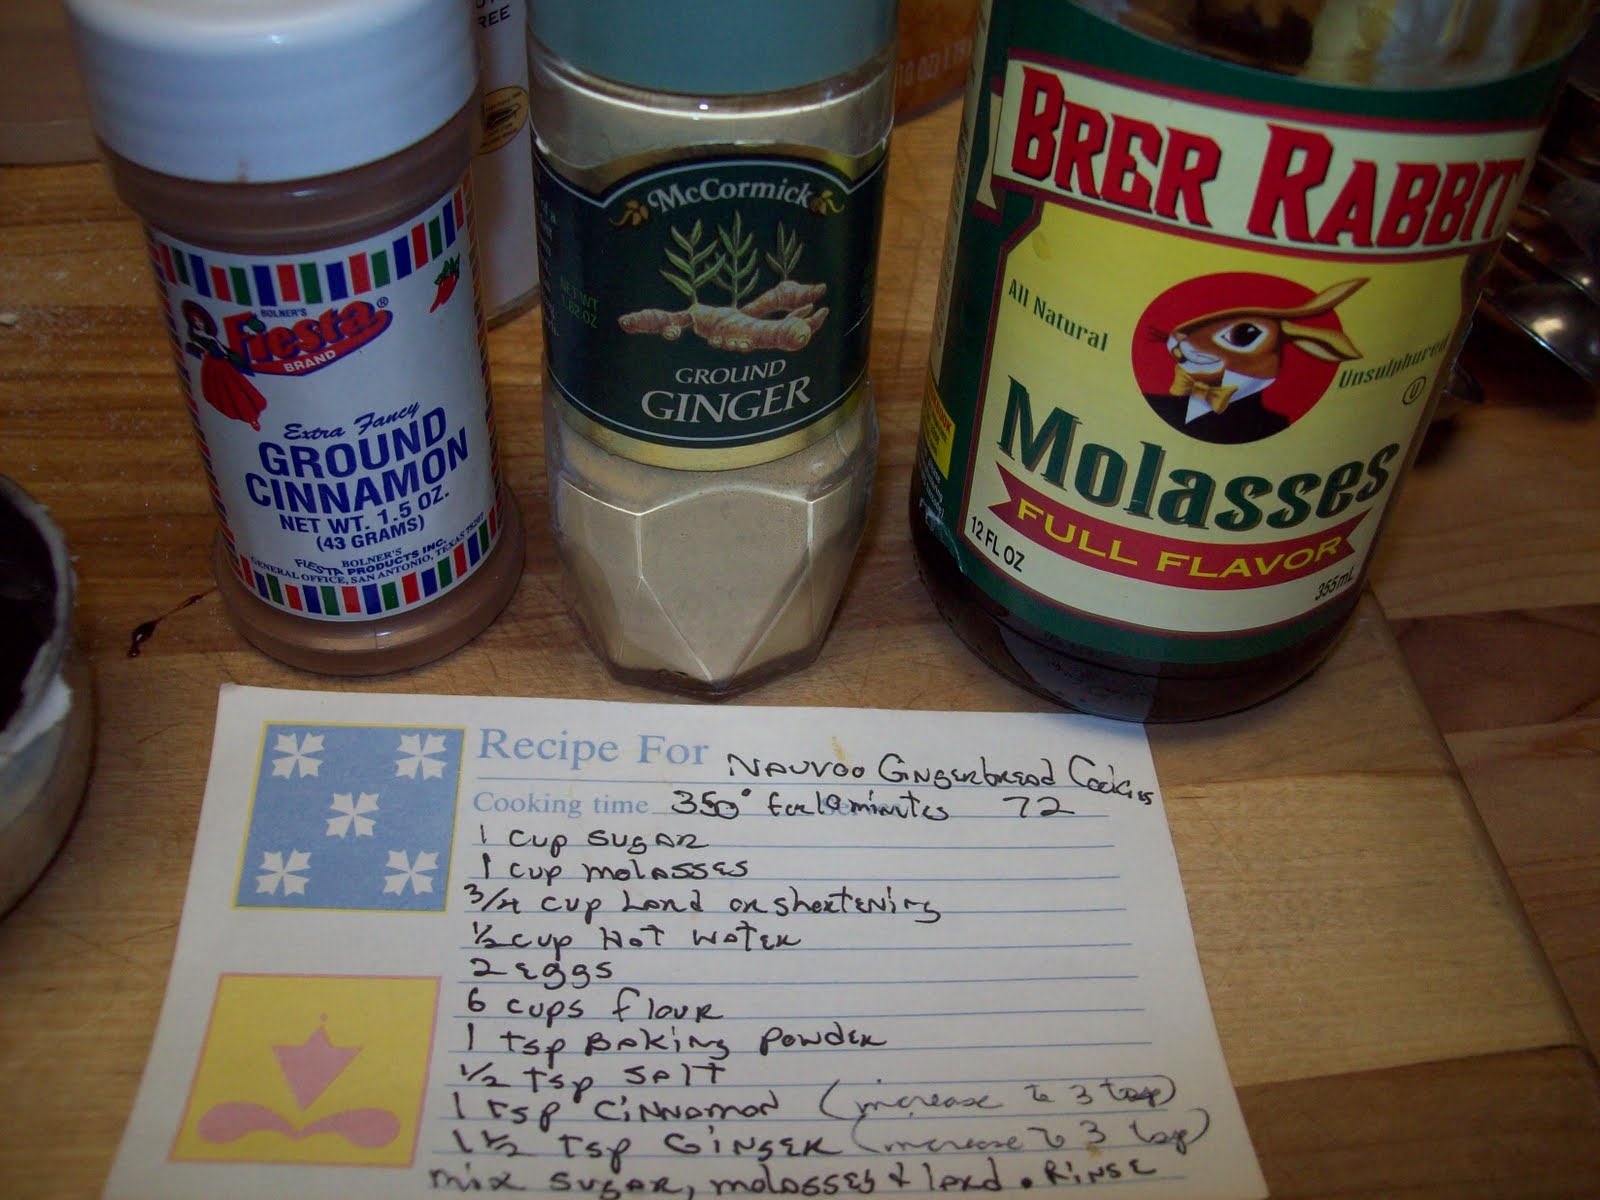 REE
BOLNER'S
Fiesta®
BRAND
Extra Fancy
GROUND
CINNAMON
NET WT. 1.5 OZ.
(43 GRAMS)
BOLNER'S
FIESTA PRODUCTS INC.
GENERAL OFFICE, SAN ANTONIO, TEXAS 78207
McCormick
NET WT
1.62 OZ
GROUND
GINGER
BRER RABBIT
All Natural
Unsulphured
U
Molasses
FULL FLAVOR
12 FL OZ
355mL
Recipe For Nauvoo Gingerbread Cookies
Cooking time 350° for 10 minutes 72
1 cup sugar
1 cup molasses
3/4 cup Lard or shortening
1/2 cup Hot water
2 eggs
6 cups flour
1 tsp Baking powder
1/2 tsp salt
1 tsp cinnamon (increase to 3 tsp)
1 1/2 tsp Ginger (increase to 3 tsp)
mix sugar, molasses & lard. Rinse